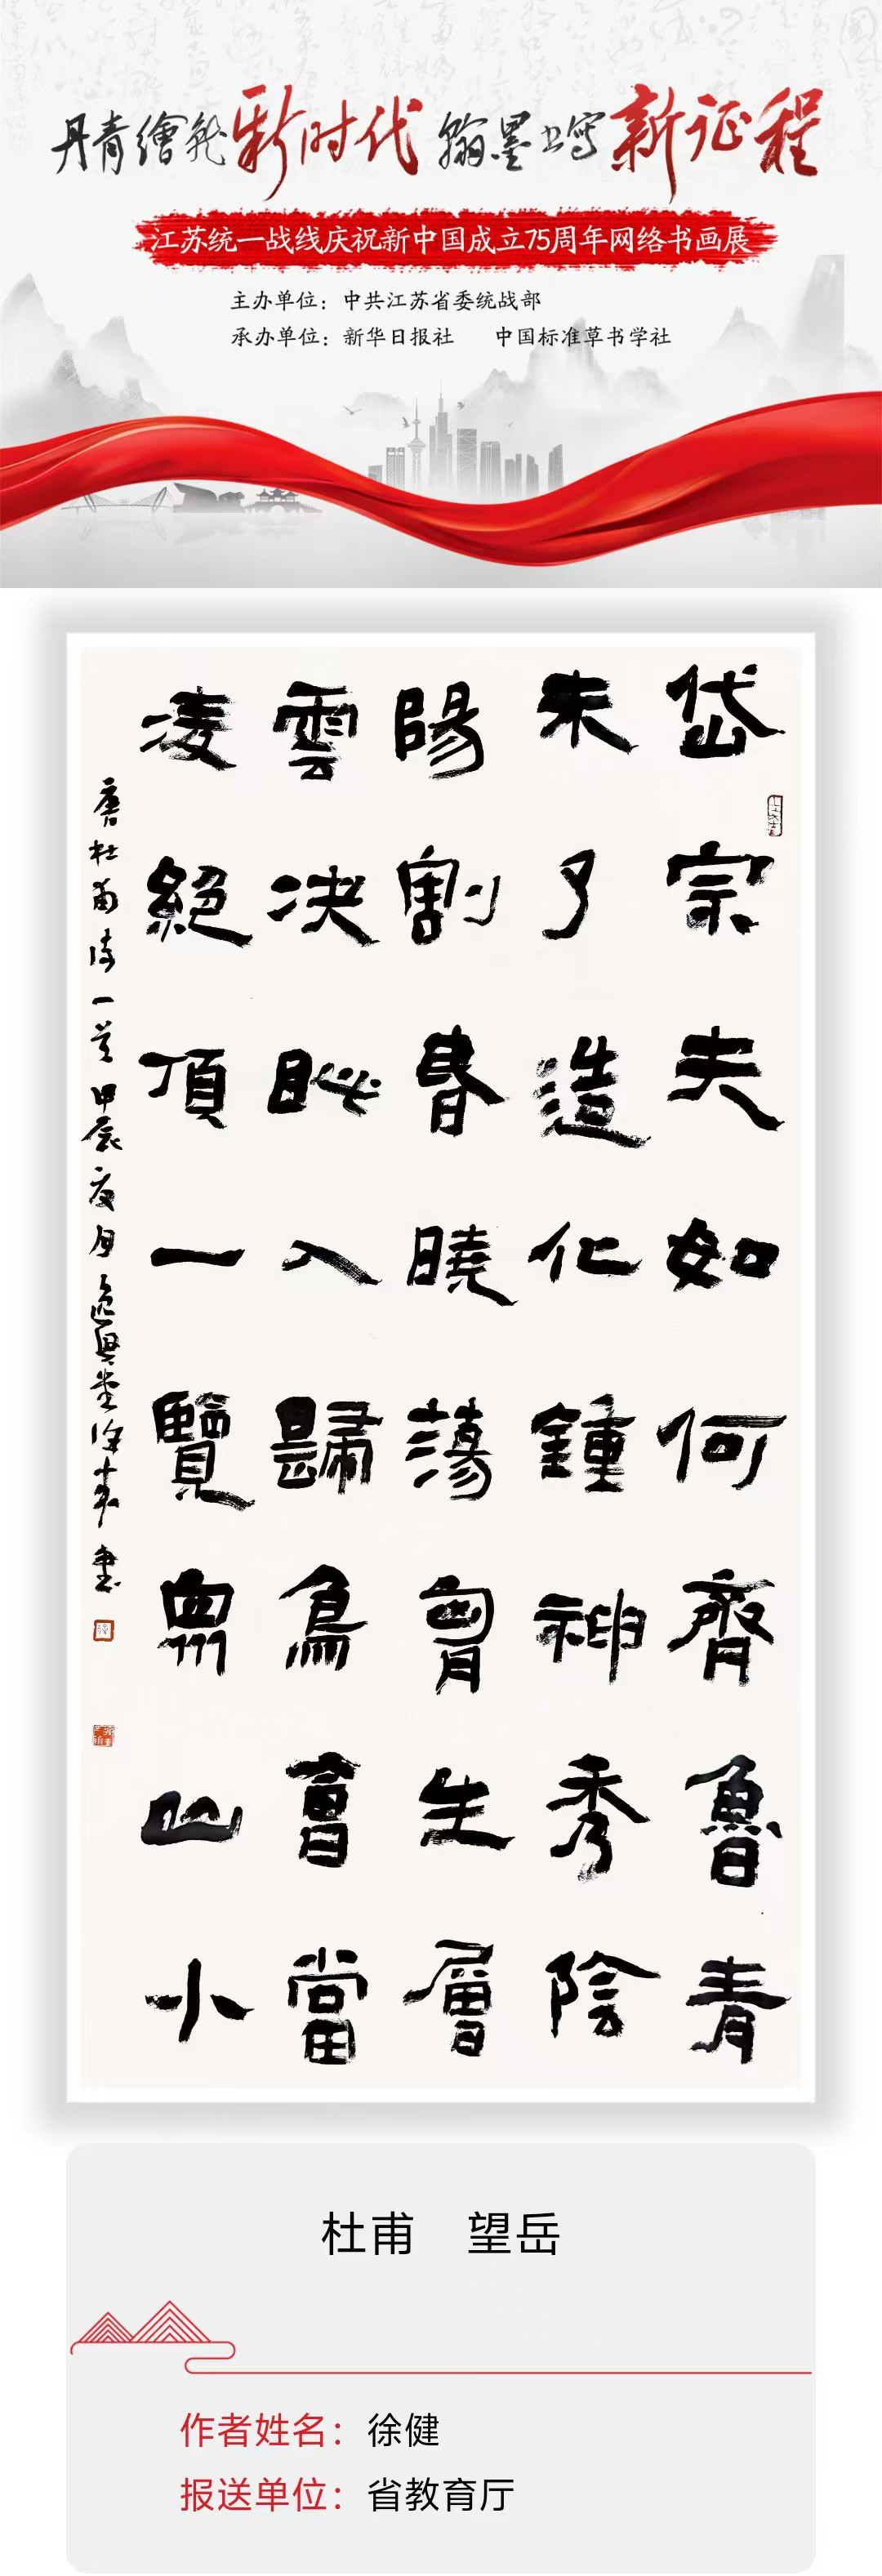 丹青繪就新时代 翰墨书寫新征程
江苏统一战线庆祝新中国成立75周年网络书画展
主办单位：中共江苏省委统战部
承办单位：新华日报社 中国标准草书学社
岱宗夫如何齊魯青
未了造化鍾神秀陰
陽割昏曉蕩胷生層
雲决眦入歸鳥會當
凌絕頂一覽眾山小
唐杜甫诗一首甲辰夏月逸興堂徐書
杜甫 望岳
作者姓名：徐健
报送单位：省教育厅